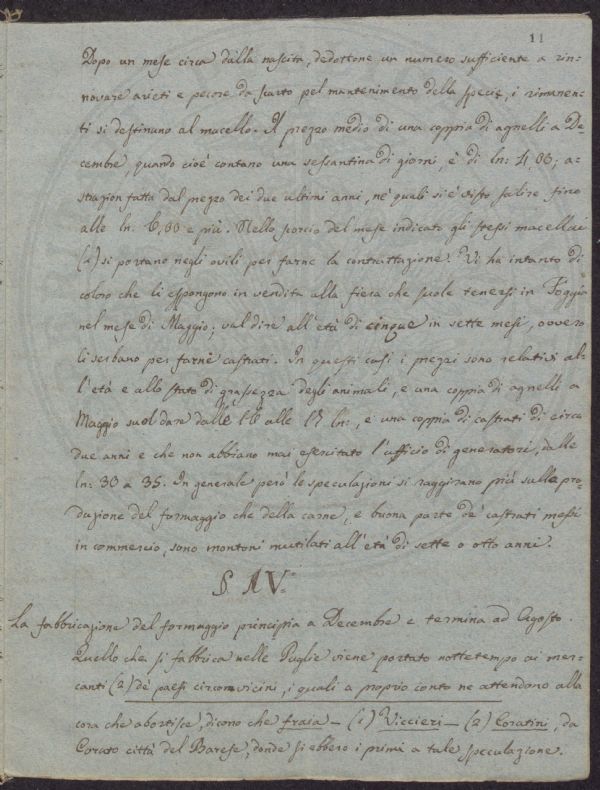 11
Dopo un mese circa dalla nascita, dedottone un numero sufficiente a rin-
novare arieti e pecore da scarto pel mantenimento della specie, i rimanen-
ti si destinano al macello. Il prezzo medio di una coppia di agnelli a De-
cembre, quando cioè contano una sessantina di giorni, è di ln: 4,00; a-
strazion fatta dal prezzo dei due ultimi anni, ne' quali si è visto salire fino
alle ln. 6,00 e più. Nello scorcio del mese indicato gli stessi macellai
(1) si portano negli ovili per farne la contrattazione. Vi ha intanto di
coloro che li espongono in vendita alla fiera che suole tenersi in Foggia
nel mese di Maggio; val dire all'età di cinque in sette mesi, ovvero
li serbano per farne castrati. In questi casi i prezzi sono relativi al-
l'età e allo stato di grassezza degli animali, e una coppia di agnelli a
Maggio suol dare dalle alle ln:, e una coppia di castrati di circa
due anni e che non abbiano mai esercitato l'ufficio di generatori, dalle
ln: 30 a 35. In generale però le speculazioni si raggirano più sulla pro-
duzione del formaggio che della carne, e buona parte de' castrati messi
in commercio, sono montoni mutilati all'età di sette o otto anni.
§. XV.
La fabbricazione del formaggio principia a Decembre e termina ad Agosto.
Quello che si fabbrica nelle Puglie viene portato nottetempo ai mer-
canti (2) de' paesi circonvicini, i quali a proprio conto ne attendono alla
cora che abortisce, dicono che fraia — (1) Viccieri — (2) Coratini, da
Corato città del Barese, donde si ebbero i primi a tale speculazione.